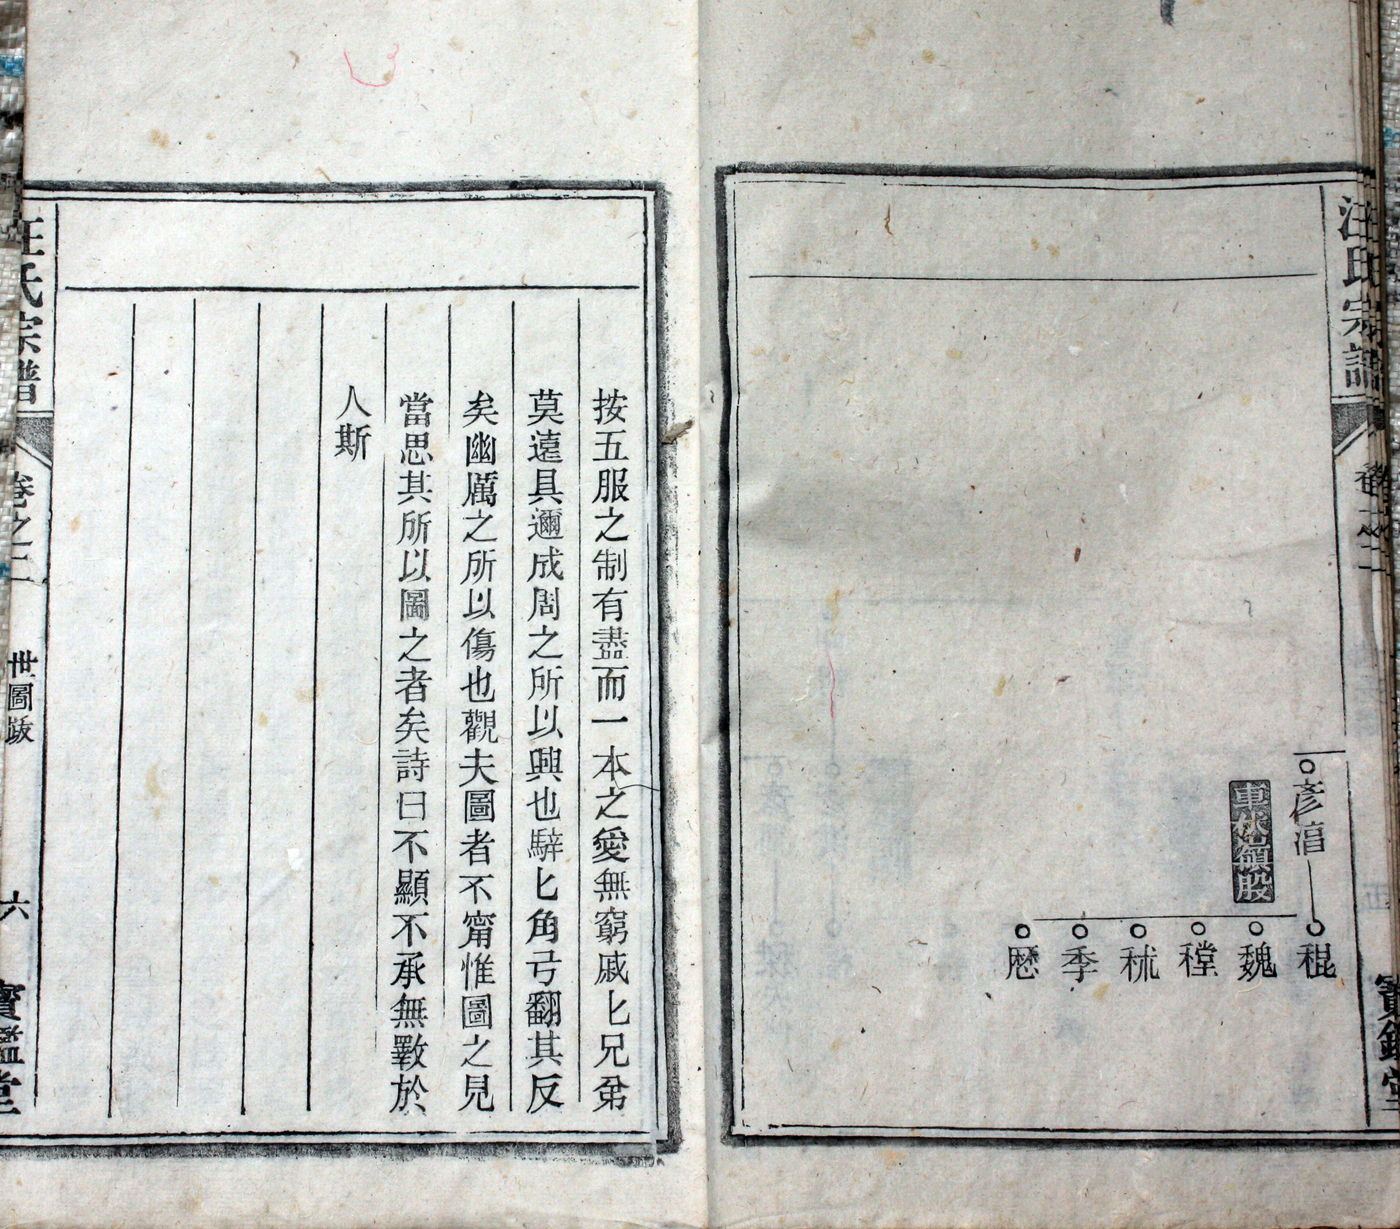 汪氏宗譜
卷之二
寶鑑堂
彥湻
車伏嶺股
稛
魏
樘
秫
季
歷
按五服之制有盡而一本之愛無窮戚匕兄弟
莫遠具邇成周之所以興也騂匕角弓翻其反
矣幽厲之所以傷也觀夫圖者不甯惟圖之見
當思其所以圖之者矣詩曰不顯不承無斁於
人斯
汪氏宗譜
卷之二
世圖跋
六
寶鑑堂